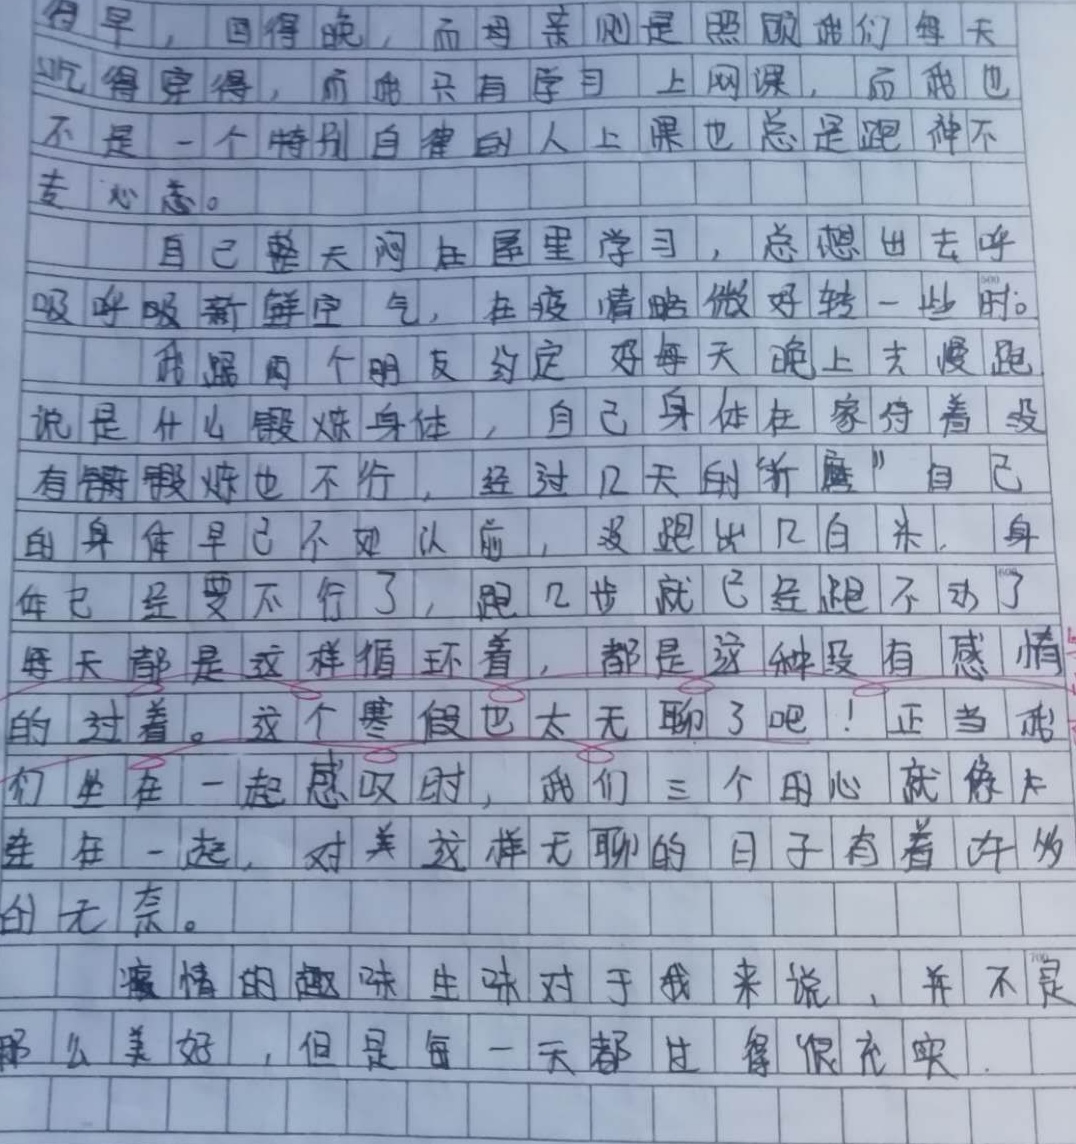 得早，回得晚，而母亲则是照顾我们每天
吃得穿得，而我只有学习 上网课，而我也
不是一个特别自律的人上课也总是跑神不
专心志。
自己整天闷在屋里学习，总想出去呼
吸呼吸新鲜空气，在疫情略微好转一些时。
500
我跟两个朋友约定好每天晚上去慢跑
说是什么锻炼身体，自己身体在家待着没
有锻炼也不行，经过几天的“折磨”自己
的身体早已不如以前，没跑出几百米，身
体已经要不行了，跑几步就已经跑不动了
600
每天都是这样循环着，都是这种没有感情
的过着。这个寒假也太无聊了吧！正当我
们坐在一起感叹时，我们三个的心就像
连在一起，对 这样无聊的日子有着许多
的无奈。
疫情的趣味生味对于我来说，并不是
700
那么美好，但是每一天都过得很充实.